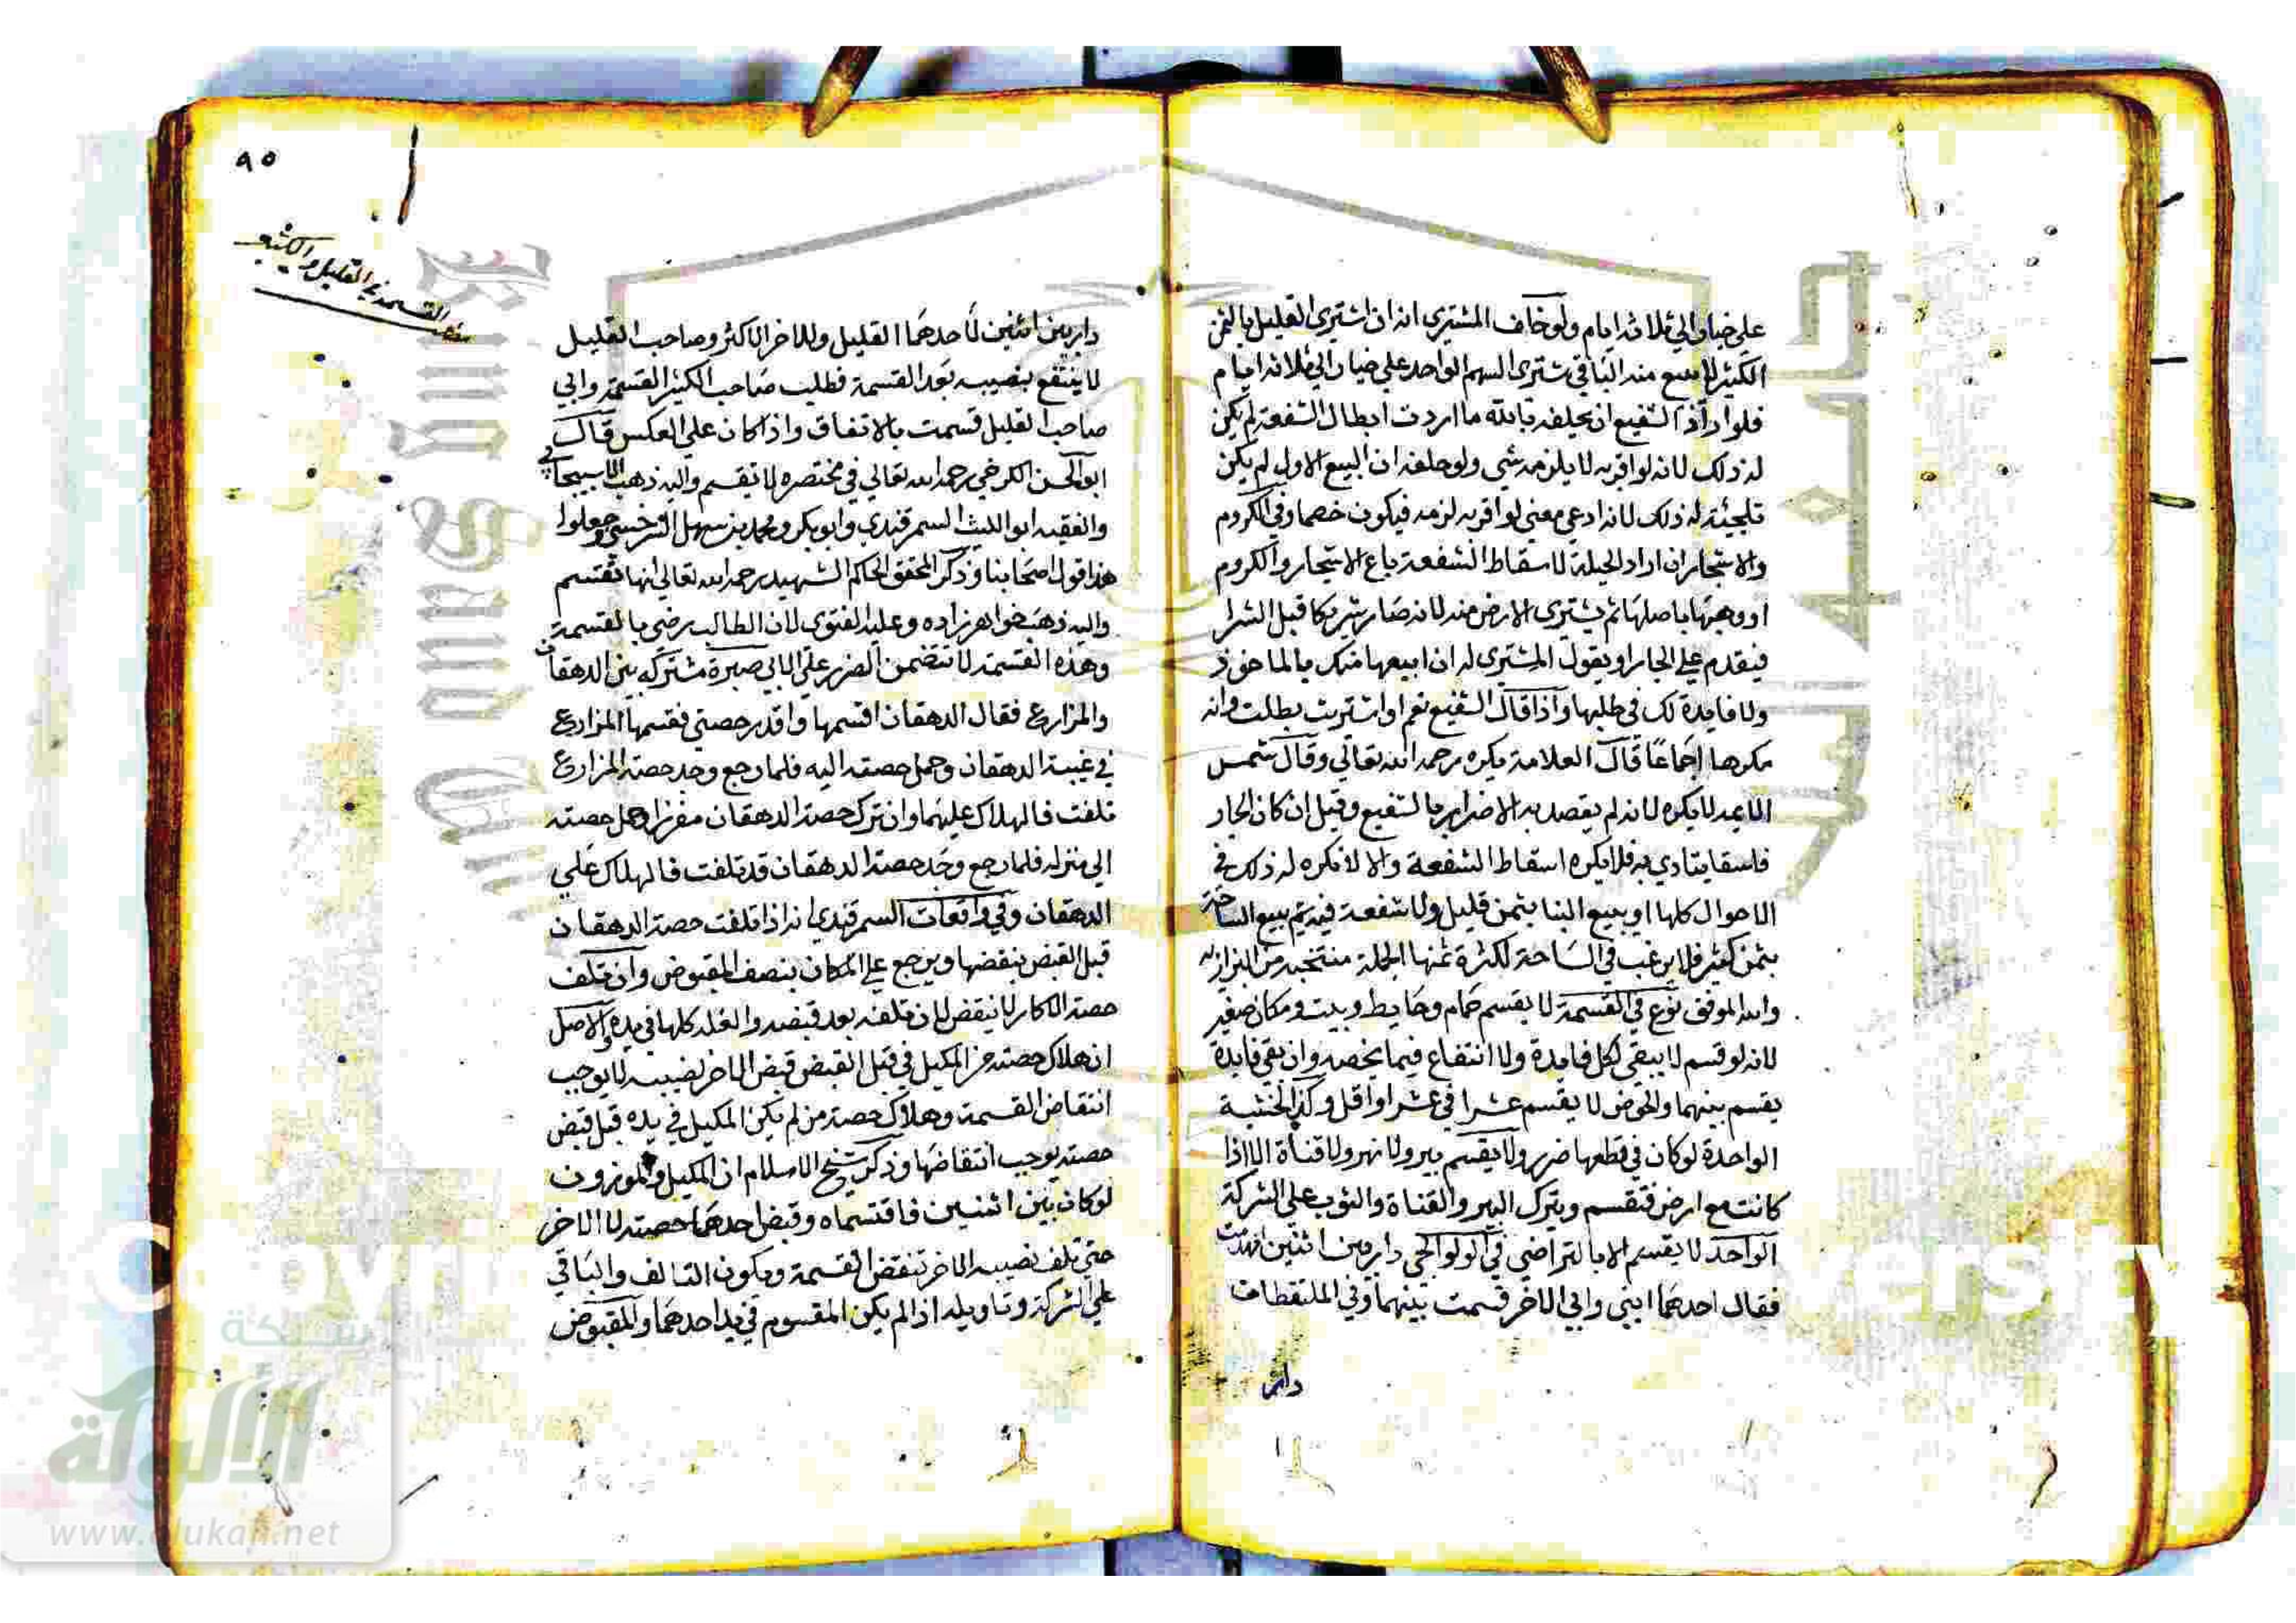 على خيار الي ثلاثة ايام ولو خاف المشتري انه ان اشتري القليل بالثمن
الكثير لا يبيع منه الباقي يشتري السهم الواحد علي خيار الي ثلاثة ايام
فلو اراد الشفيع ان يحلفه بالله ما اردت ابطال الشفعة لم يكن
له ذلك لانه لو اقر به لا يلزمه شي ولو حلفه ان البيع الاول لم يكن
تلجئة له ذلك لانه ادعي معني لو اقر به لزمه فيكون خصما وفي الكروم
والاشجار ان اراد الحيلة لاسقاط الشفعة باع الاشجار والكروم
او وهبها باصلها ثم يشتري الارض منه لانه صار شريكا قبل الشرا
فيقدم علي الجار او يقول المشتري له ان ابيعها منك بالماخوذ
ولا فايدة لك في طلبها واذا قال الشفيع نعم او اشتريت بطلت وانه
مكروها اجماعا قال العلامة يكره رحمه الله تعالي وقال شمس
الايمه لا يكره لانه لم يقصد به الاضرار بالشفيع وقيل ان كان الجار
فاسقا يتاذي به فلا يكره اسقاط الشفعة والا لا يكره له ذلك في
الاحوال كلها او يبيع البنا بثمن قليل ولا شفعة فيه ثم يبيع الساحة
بثمن كثير فلا يرغب في الساحة لكثرة ثمنها الجملة منتخبه من البزازيه
والله الموفق نوع في القسمة لا يقسم حمام وحايط وبيت ومكان صغير
لانه لو قسم لا يبقى لكل فايدة ولا انتفاع فيما يخصه وان بقي فايدة
يقسم بينهما والحوض لا يقسم عشرا في عشر او اقل وكذا الخشبة
الواحدة لو كان في قطعها ضرر ولا يقسم بير ولا نهر ولا قناة الا اذا
كانت مع ارض فتقسم ويترك البير والقناة والثوب علي الشركة
الواحد لا يقسم الا بالتراضي في الولوالجي دار بين اثنين انهدمت
فقال احدهما ابني وابي الاخر قسمت بينهما وفي الملتقطات
دار
٩٥
القسمة في القليل والكثير
دار بين اثنين لاحدهما القليل وللاخر الاكثر وصاحب القليل
لا ينتفع بنصيبه بعد القسمة فطلب صاحب الكثير القسمة وابي
صاحب القليل قسمت بالاتفاق واذا كان علي العكس قال
ابو الحسن الكرخي رحمه الله تعالي في مختصره لا تقسم واليه ذهب الاسبيجابي
والفقيه ابو الليث السمرقندي وابو بكر ومحمد بن سهل السرخسي وجعلوا
هذا قول اصحابنا وذكر المحقق الحاكم الشهيد رحمه الله تعالي انها تقتسم
واليه ذهب خواهر زاده وعليه الفتوى لان الطالب رضي بالقسمة
وهذه القسمة لا تتضمن الضرر علي الابي صبرة مشتركه بين الدهقان
والمزارع فقال الدهقان اقسمها وافرز حصتي فقسمها المزارع
في غيبة الدهقان وحمل حصته اليه فلما رجع وجد حصة المزارع
تلفت فالهلاك عليهما وان ترك حصة الدهقان مفرزا وحمل حصته
الي منزله فلما رجع وجد حصة الدهقان قد تلفت فالهلاك علي
الدهقان وفي واقعات السمرقندي انه اذا تلفت حصة الدهقان
قبل القبض ينقضها ويرجع علي بنصف المقبوض وان تلف
حصة الاكار لا ينقض لان تلفه بعد قبضه والغله كلها في يده والاصل
ان هلاك حصة من المكيل في قبل القبض قبض الاخر نصيبه لا يوجب
انتقاض القسمة وهلاك حصة من لم يكن المكيل في يده قبل قبض
حصته يوجب انتقاضها وذكر شيخ الاسلام ان المكيل والموزون
لو كان بين اثنين فاقتسماه وقبض احدهما حصته لا الاخر
حتي تلف نصيب الاخر تنقض القسمة ويكون التالف والباقي
علي الشركة وتاويله اذا لم يكن المقسوم في يد احدهما والمقبوض
شبكة
الألوكة
www.alukah.net